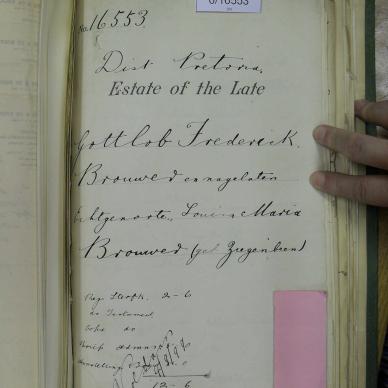 6/16553
No. 16553
Dist Pretoria.
Estate of the Late
Gottlob Frederick
Brouwer en nagelaten
Echtgenoote, Louisa Maria
Brouwer (geb Ziegenbein)
Reg Sterfk. 2-6
do Testament
Copie do
Brief Admin
12-6